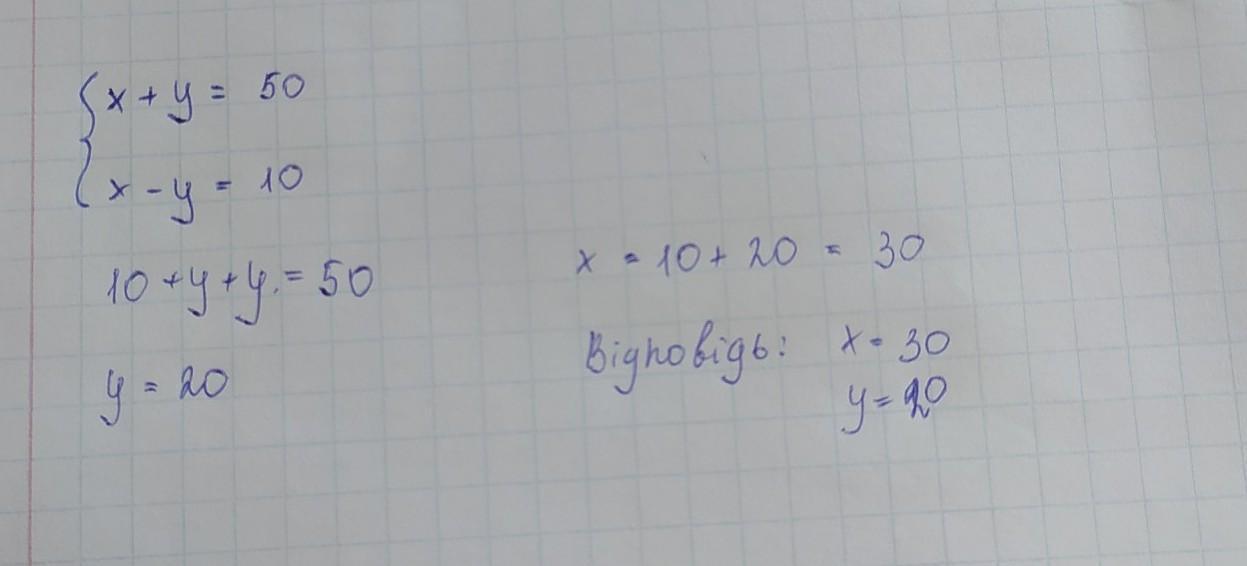 x + y = 50
x - y = 10
10 + y + y = 50
y = 20
x = 10 + 20 = 30
Відповідь: x = 30
y = 20